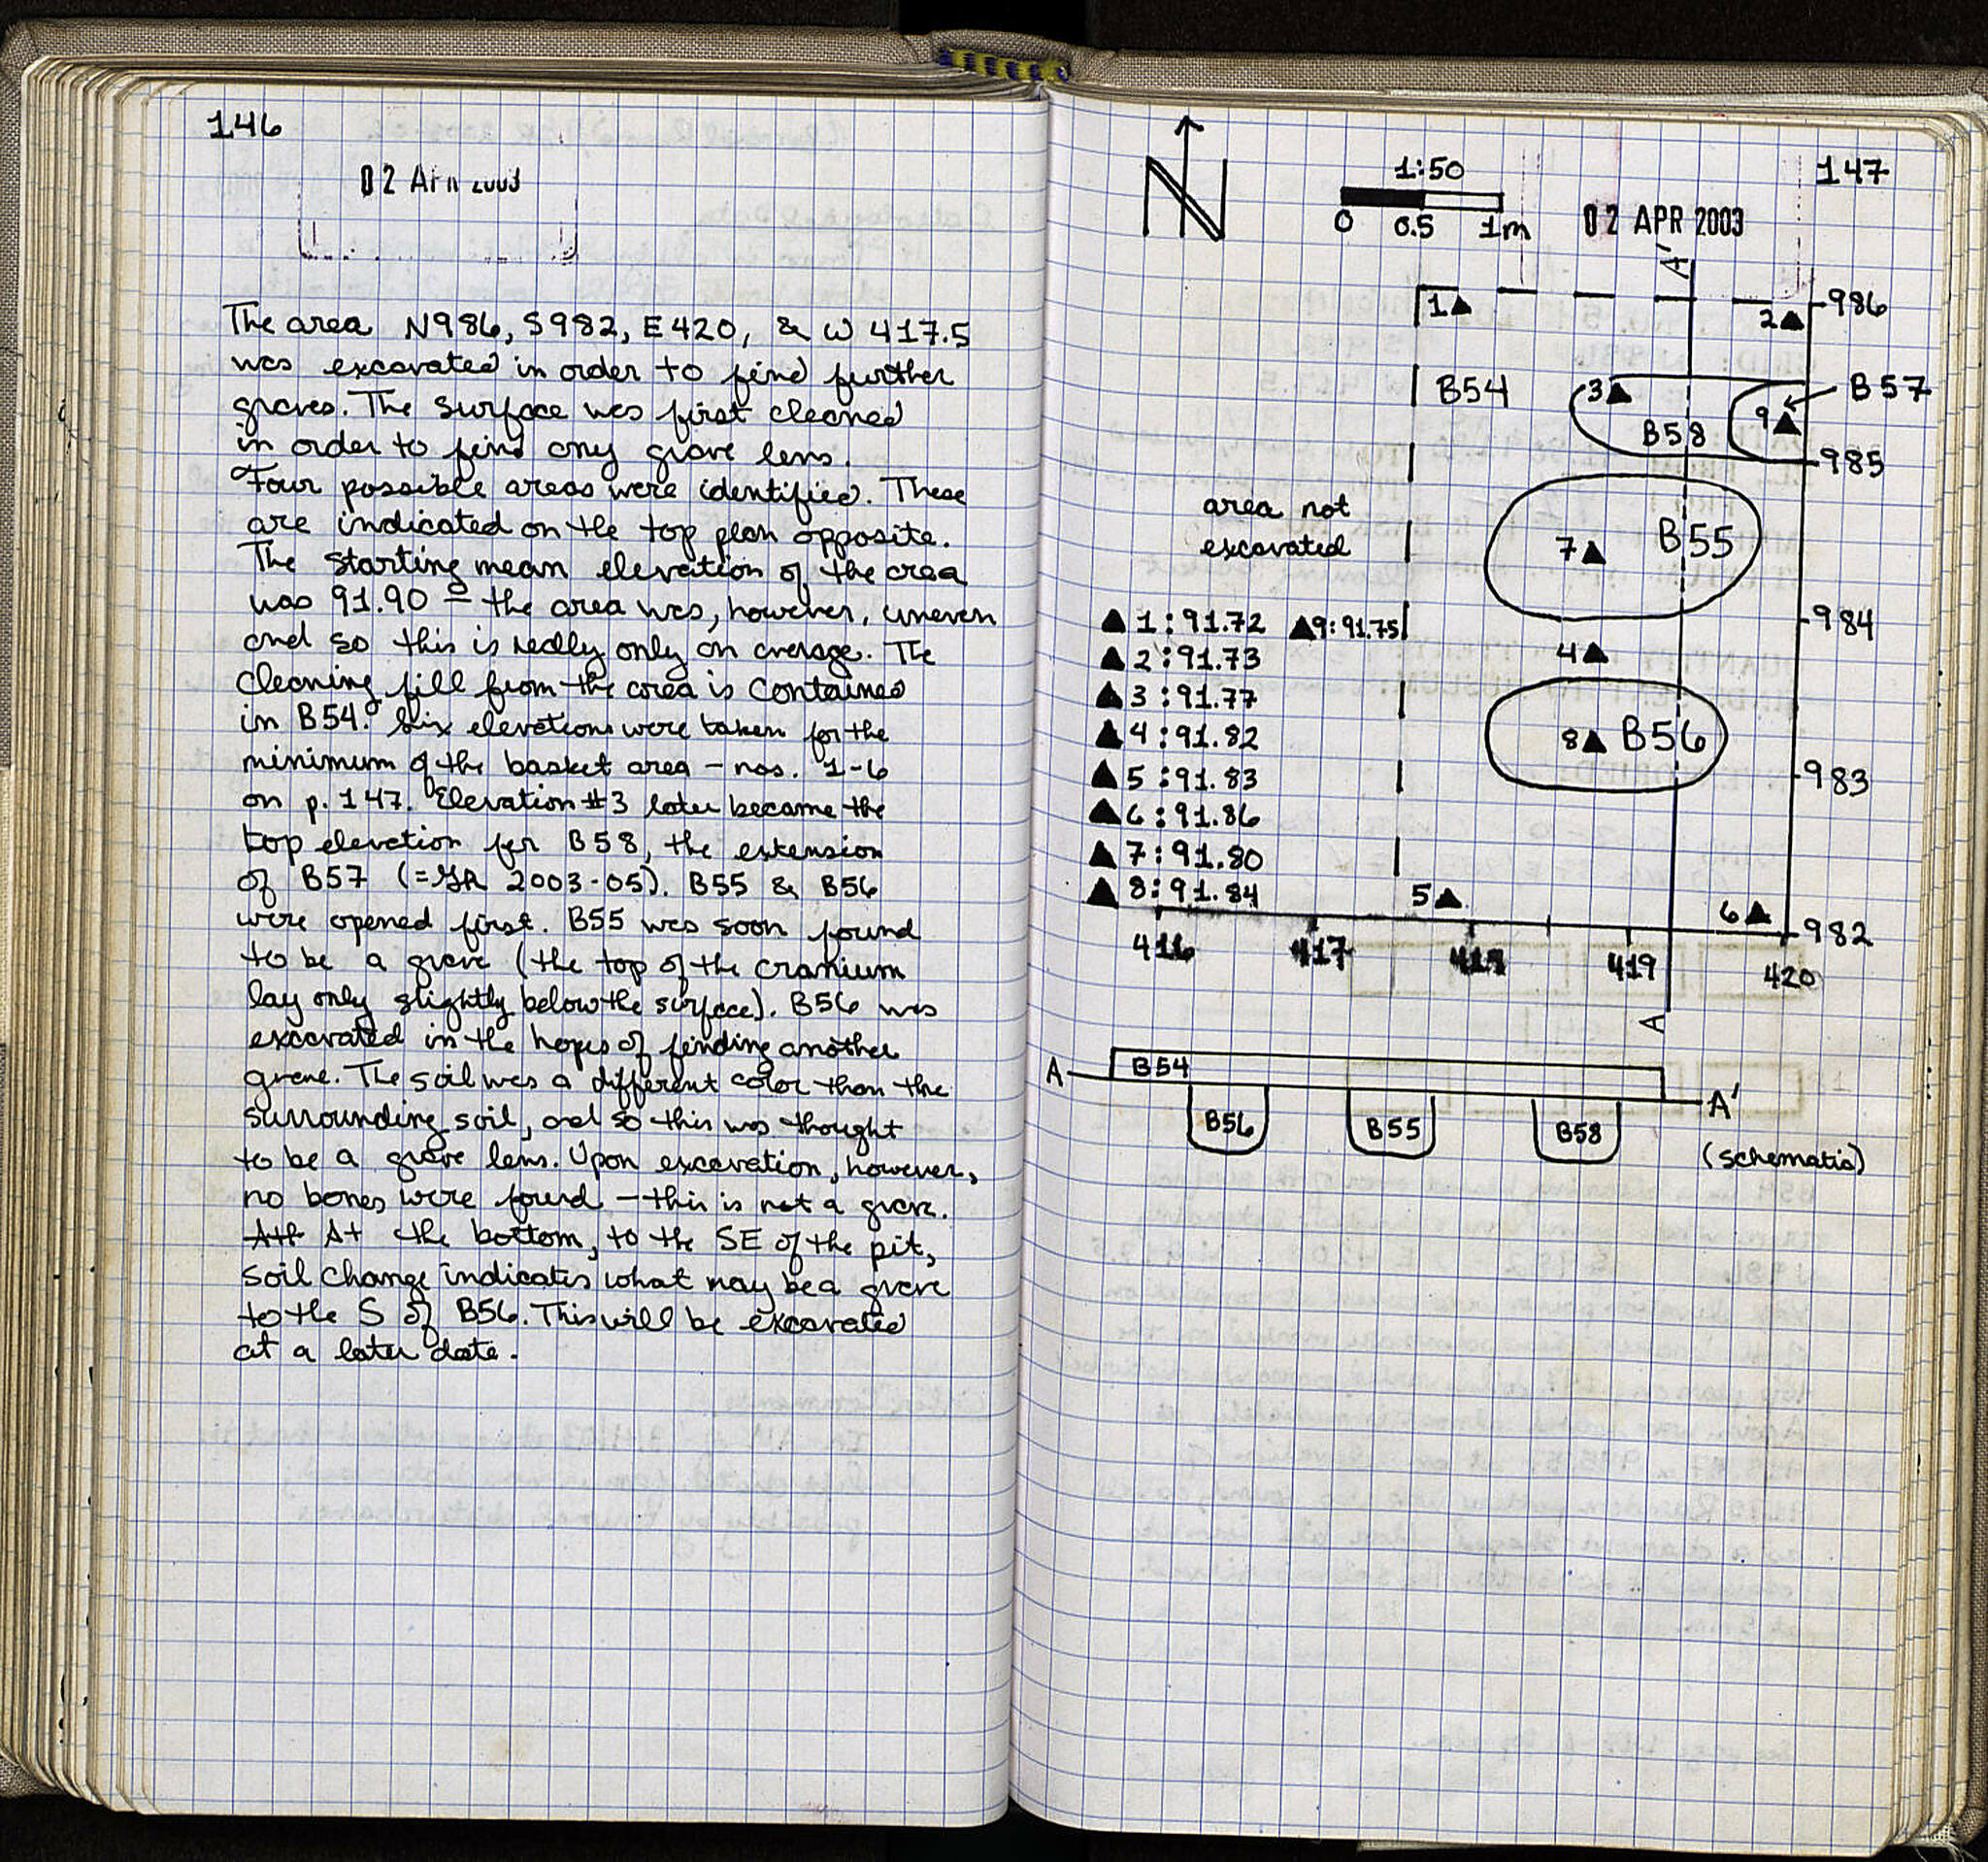 146
02 APR 2003
The area N986, S982, E420, & W 417.5
was excavated in order to find further
graves. The surface was first cleaned
in order to find any grave lens.
Four possible areas were identified. These
are indicated on the top plan opposite.
The starting mean elevation of the area
was 91.90 – the area was, however, uneven
and so this is really only an average. The
cleaning fill from the area is contained
in B54. Six elevations were taken for the
minimum of the basket area – nos. 1-6
on p. 147. Elevation #3 later became the
top elevation for B58, the extension
of B57 (=GR 2003-05). B55 & B56
were opened first. B55 was soon found
to be a grave (the top of the cranium
lay only slightly below the surface). B56 was
excavated in the hopes of finding another
grave. The soil was a different color than the
surrounding soil, and so this was thought
to be a grave lens. Upon excavation, however,
no bones were found – this is not a grave.
At the bottom, to the SE of the pit,
soil change indicates what may be a grave
to the S of B56. This will be excavated
at a later date.
147
N
1:50
0 0.5 1m
02 APR 2003
A'
1▲ 2▲ 986
B54 3▲ B58 9▲ B57
985
area not
excavated
7▲ B55
984
4▲
8▲ B56
983
▲ 1: 91.72 ▲9: 91.75
▲ 2: 91.73
▲ 3: 91.77
▲ 4: 91.82
▲ 5: 91.83
▲ 6: 91.86
▲ 7: 91.80
▲ 8: 91.84
5▲ 6▲ 982
416 417 418 419 420
A
A B54 A'
B56 B55 B58
(schematic)